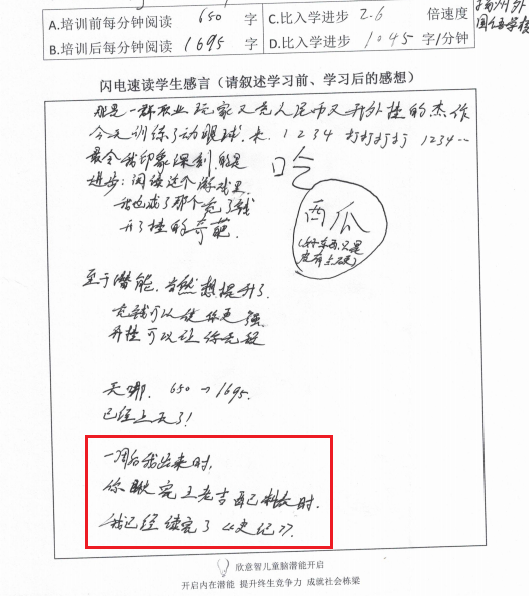 A.培训前每分钟阅读 650 字
C.比入学进步 2.6 倍速度
扬州外国语学校
B.培训后每分钟阅读 1695 字
D.比入学进步 1045 字1分钟
闪电速读学生感言（请叙述学习前、学习后的感想）
那是一群职业玩家又充人民币又开外挂的杰作
今天训练了动眼球,来. 1 2 3 4 打打打打 1234··
最令我印象深刻的是
进步:阅读这个游戏里.
我也成了那个充了钱
开了挂的奇葩.
哈
西瓜
至于潜能,当然想提升了.
充钱可以使你更强
开挂可以让你无敌
天哪, 650→1695.
已经上天了!
一周后我出来时,
你瞅完王老吉配料表时.
我已经读完了《史记》.
欣意智儿童脑潜能开启
开启内在潜能 提升终生竞争力 成就社会栋梁